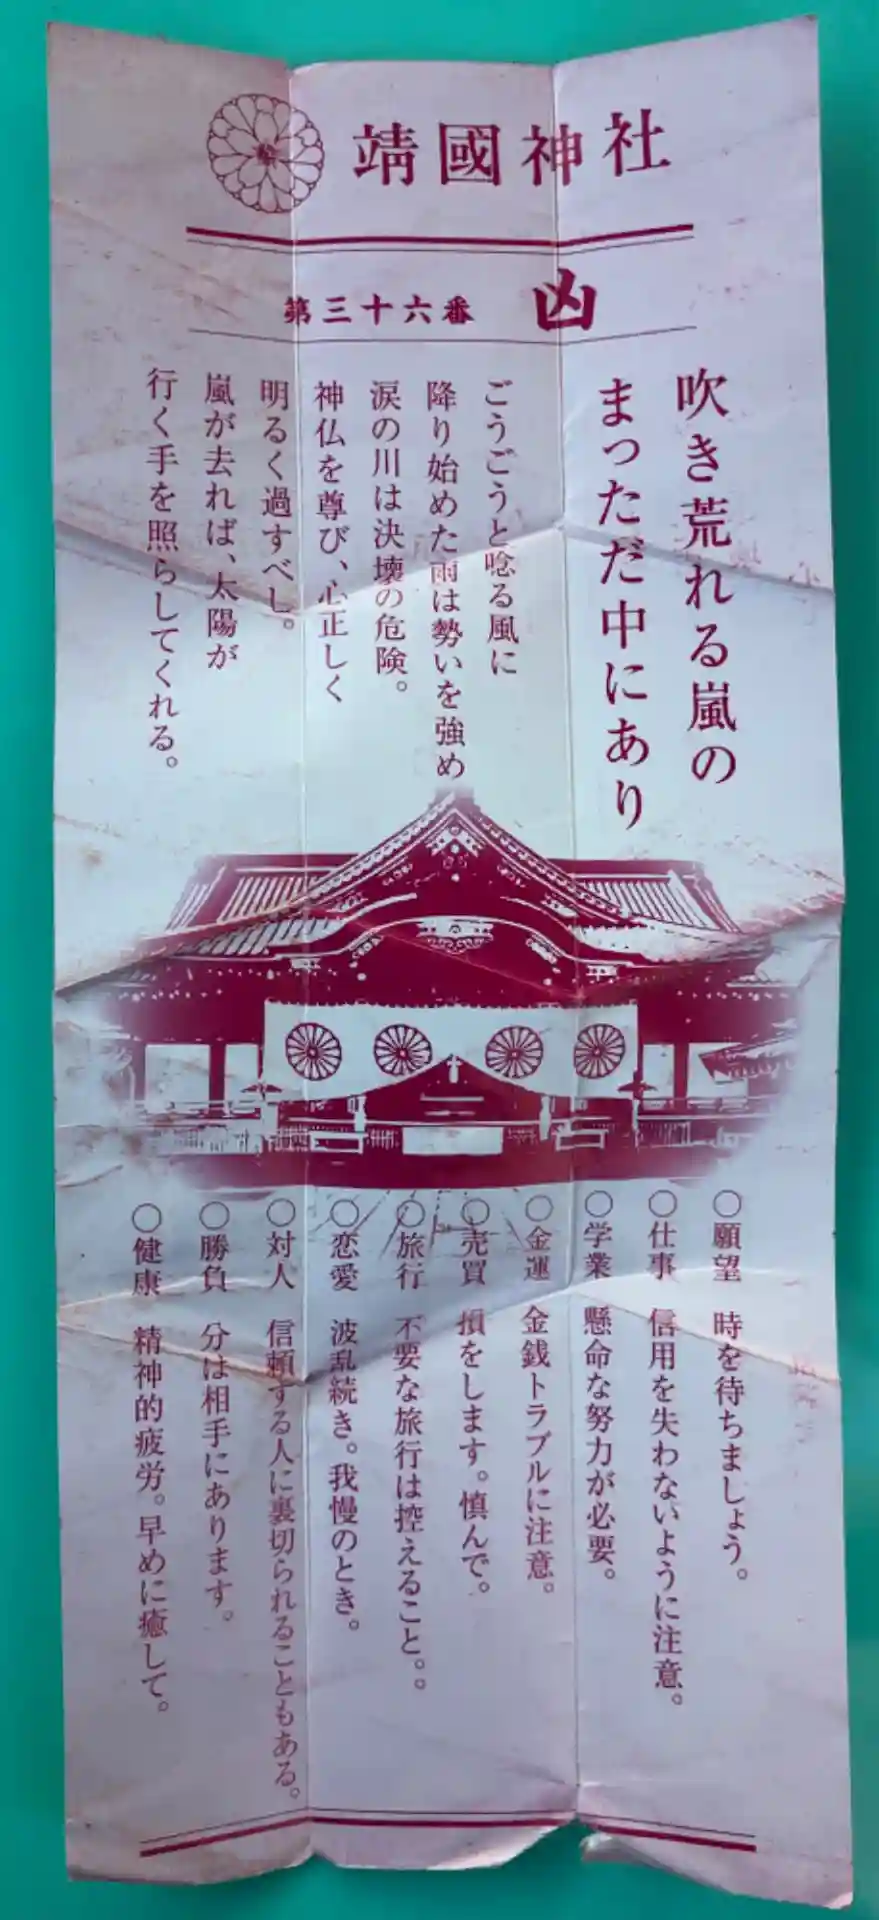 靖國神社
第三十六番 凶
吹き荒れる嵐の
まっただ中にあり
ごうごうと唸る風に
降り始めた雨は勢いを強め
涙の川は決壊の危険。
神仏を尊び、心正しく
明るく過すべし。
嵐が去れば、太陽が
行く手を照らしてくれる。
○願望 時を待ちましょう。
○仕事 信用を失わないように注意。
○学業 懸命な努力が必要。
○金運 金銭トラブルに注意。
○売買 損をします。慎んで。
○旅行 不要な旅行は控えること。。
○恋愛 波乱続き。我慢のとき。
○対人 信頼する人に裏切られることもある。
○勝負 分は相手にあります。
○健康 精神的疲労。早めに癒して。